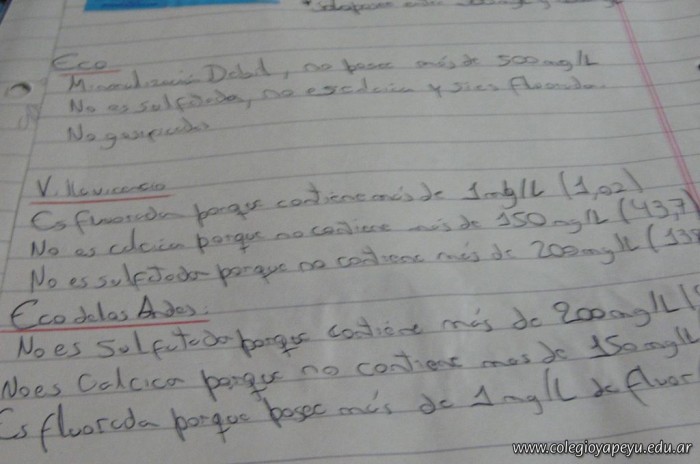 Eco
Mineralización Debil, no posee más de 500 mg/L
No es sulfatada, no es calcica y si es fluorada.
No gasificada
Villavicencio
Es fluorada porque contiene más de 1 mg/L (1,02)
No es calcica porque no contiene más de 150 mg/L (43,7)
No es sulfatada porque no contiene más de 200 mg/L (138
Eco de los Andes:
No es Sulfatada porque contiene más de 200 mg/L (
No es Calcica porque no contiene mas de 150 mg/L
Es fluorada porque posee más de 1 mg/L de fluor
www.colegioyapeyu.edu.ar